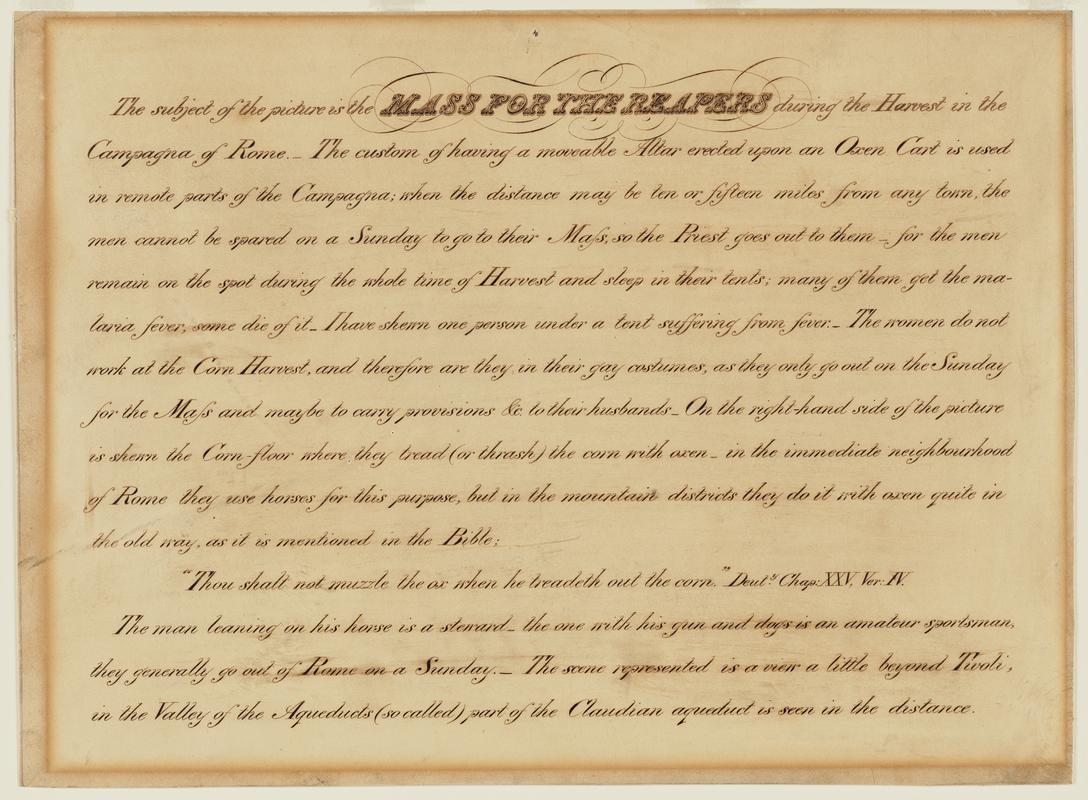 The subject of the picture is the MASS FOR THE REAPERS during the Harvest in the
Campagna of Rome._ The custom of having a moveable Altar erected upon an Oxen Cart is used
in remote parts of the Campagna; when the distance may be ten or fifteen miles from any town, the
men cannot be spared on a Sunday to go to their Maſs, so the Priest goes out to them _ for the men
remain on the spot during the whole time of Harvest and sleep in their tents; many of them get the ma-
laria fever, some die of it _ I have shewn one person under a tent suffering from fever._ The women do not
work at the Corn Harvest, and therefore are they in their gay costumes, as they only go out on the Sunday
for the Maſs and maybe to carry provisions &c. to their husbands _ On the right-hand side of the picture
is shewn the Corn-floor where they tread (or thrash) the corn with oxen _ in the immediate neighbourhood
of Rome they use horses for this purpose, but in the mountain districts they do it with oxen quite in
the old way, as it is mentioned in the Bible;
"Thou shalt not muzzle the ox when he treadeth out the corn." Deut.y Chap: XXV, Ver: IV.
The man leaning on his horse is a steward _ the one with his gun and dogs is an amateur sportsman,
they generally go out of Rome on a Sunday._ The scene represented is a view a little beyond Tivoli,
in the Valley of the Aqueducts (so called) part of the Claudian aqueduct is seen in the distance.